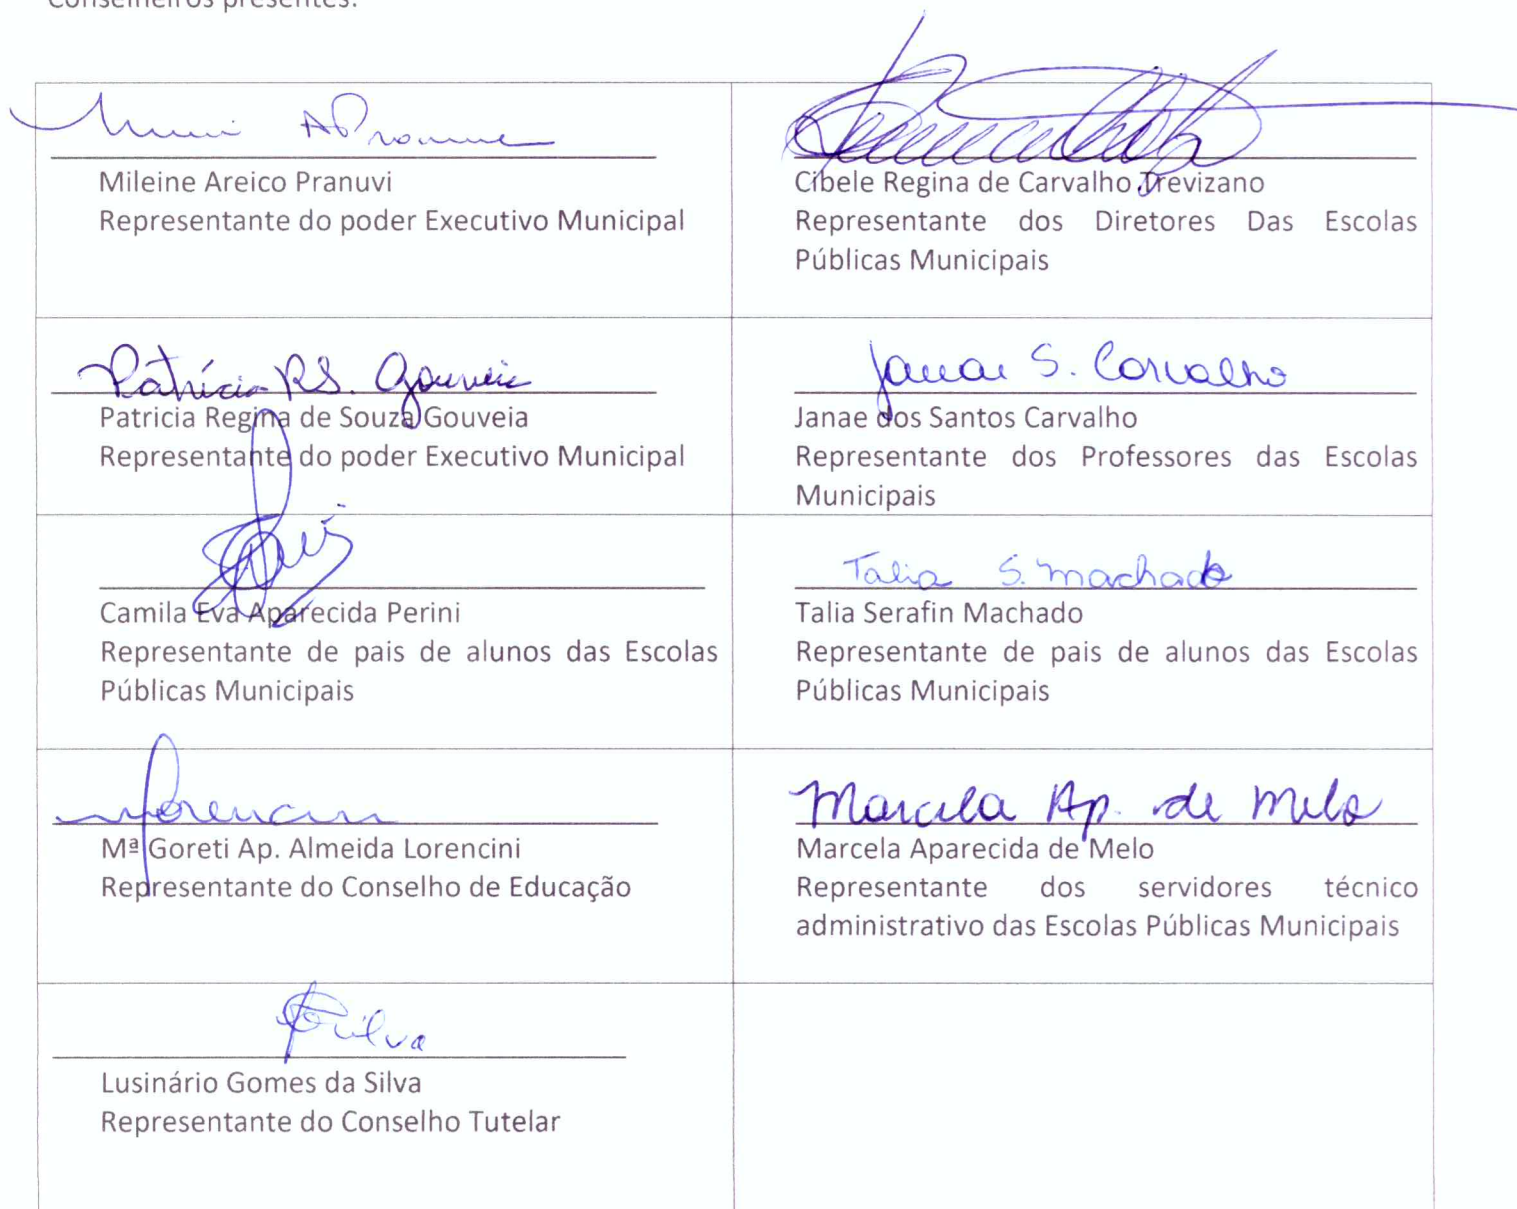 Conselheiros presentes:
Mileine Areico Pranuvi
Representante do poder Executivo Municipal
Cibele Regina de Carvalho Trevizano
Representante dos Diretores Das Escolas
Públicas Municipais
Patrícia RS. Gouveia
Patricia Regina de Souza Gouveia
Representante do poder Executivo Municipal
Janae S. Carvalho
Janae dos Santos Carvalho
Representante dos Professores das Escolas
Municipais
Camila Eva Aparecida Perini
Representante de pais de alunos das Escolas
Públicas Municipais
Talia S. Machado
Talia Serafin Machado
Representante de pais de alunos das Escolas
Públicas Municipais
Mª Goreti Ap. Almeida Lorencini
Representante do Conselho de Educação
Marcela Ap. de Melo
Marcela Aparecida de Melo
Representante dos servidores técnico
administrativo das Escolas Públicas Municipais
Silva
Lusinário Gomes da Silva
Representante do Conselho Tutelar